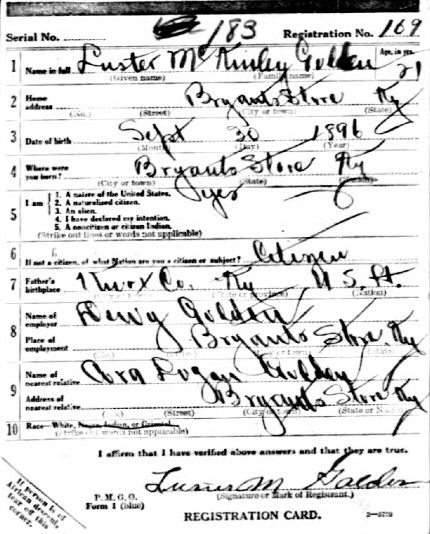 Serial No. 183 Registration No. 169
1 Name in full Luster McKinley Golden Age, in yrs. 21
(Given name) (Family name)
2 Home address Bryants Store Ky
(No.) (Street) (City or town) (State)
3 Date of birth Sept 30 1896
(Month) (Day) (Year)
4 Where were you born? Bryants Store Ky
(City or town) (State)
yes
5 I am
1. A native of the United States.
2. A naturalized citizen.
3. An alien.
4. I have declared my intention.
5. A noncitizen or citizen Indian.
(Strike out lines or words not applicable)
6 If not a citizen, of what Nation are you a citizen or subject? Citizen
7 Father's birthplace Knox Co. Ky U.S.
(Nation)
8 Name of employer Golden
Place of employment Bryants Store, Ky
9 Name of nearest relative Golden
Address of nearest relative Bryants Store Ky
(No.) (Street) (City or town)
10 Race—White, Negro, Indian, or Oriental
(Strike out words not applicable)
I affirm that I have verified above answers and that they are true.
Luster M Golden
P. M. G. O. (Signature or Mark of Registrant.)
Form 1 (blue) REGISTRATION CARD.
If person is of
African descent,
tear off this
corner.